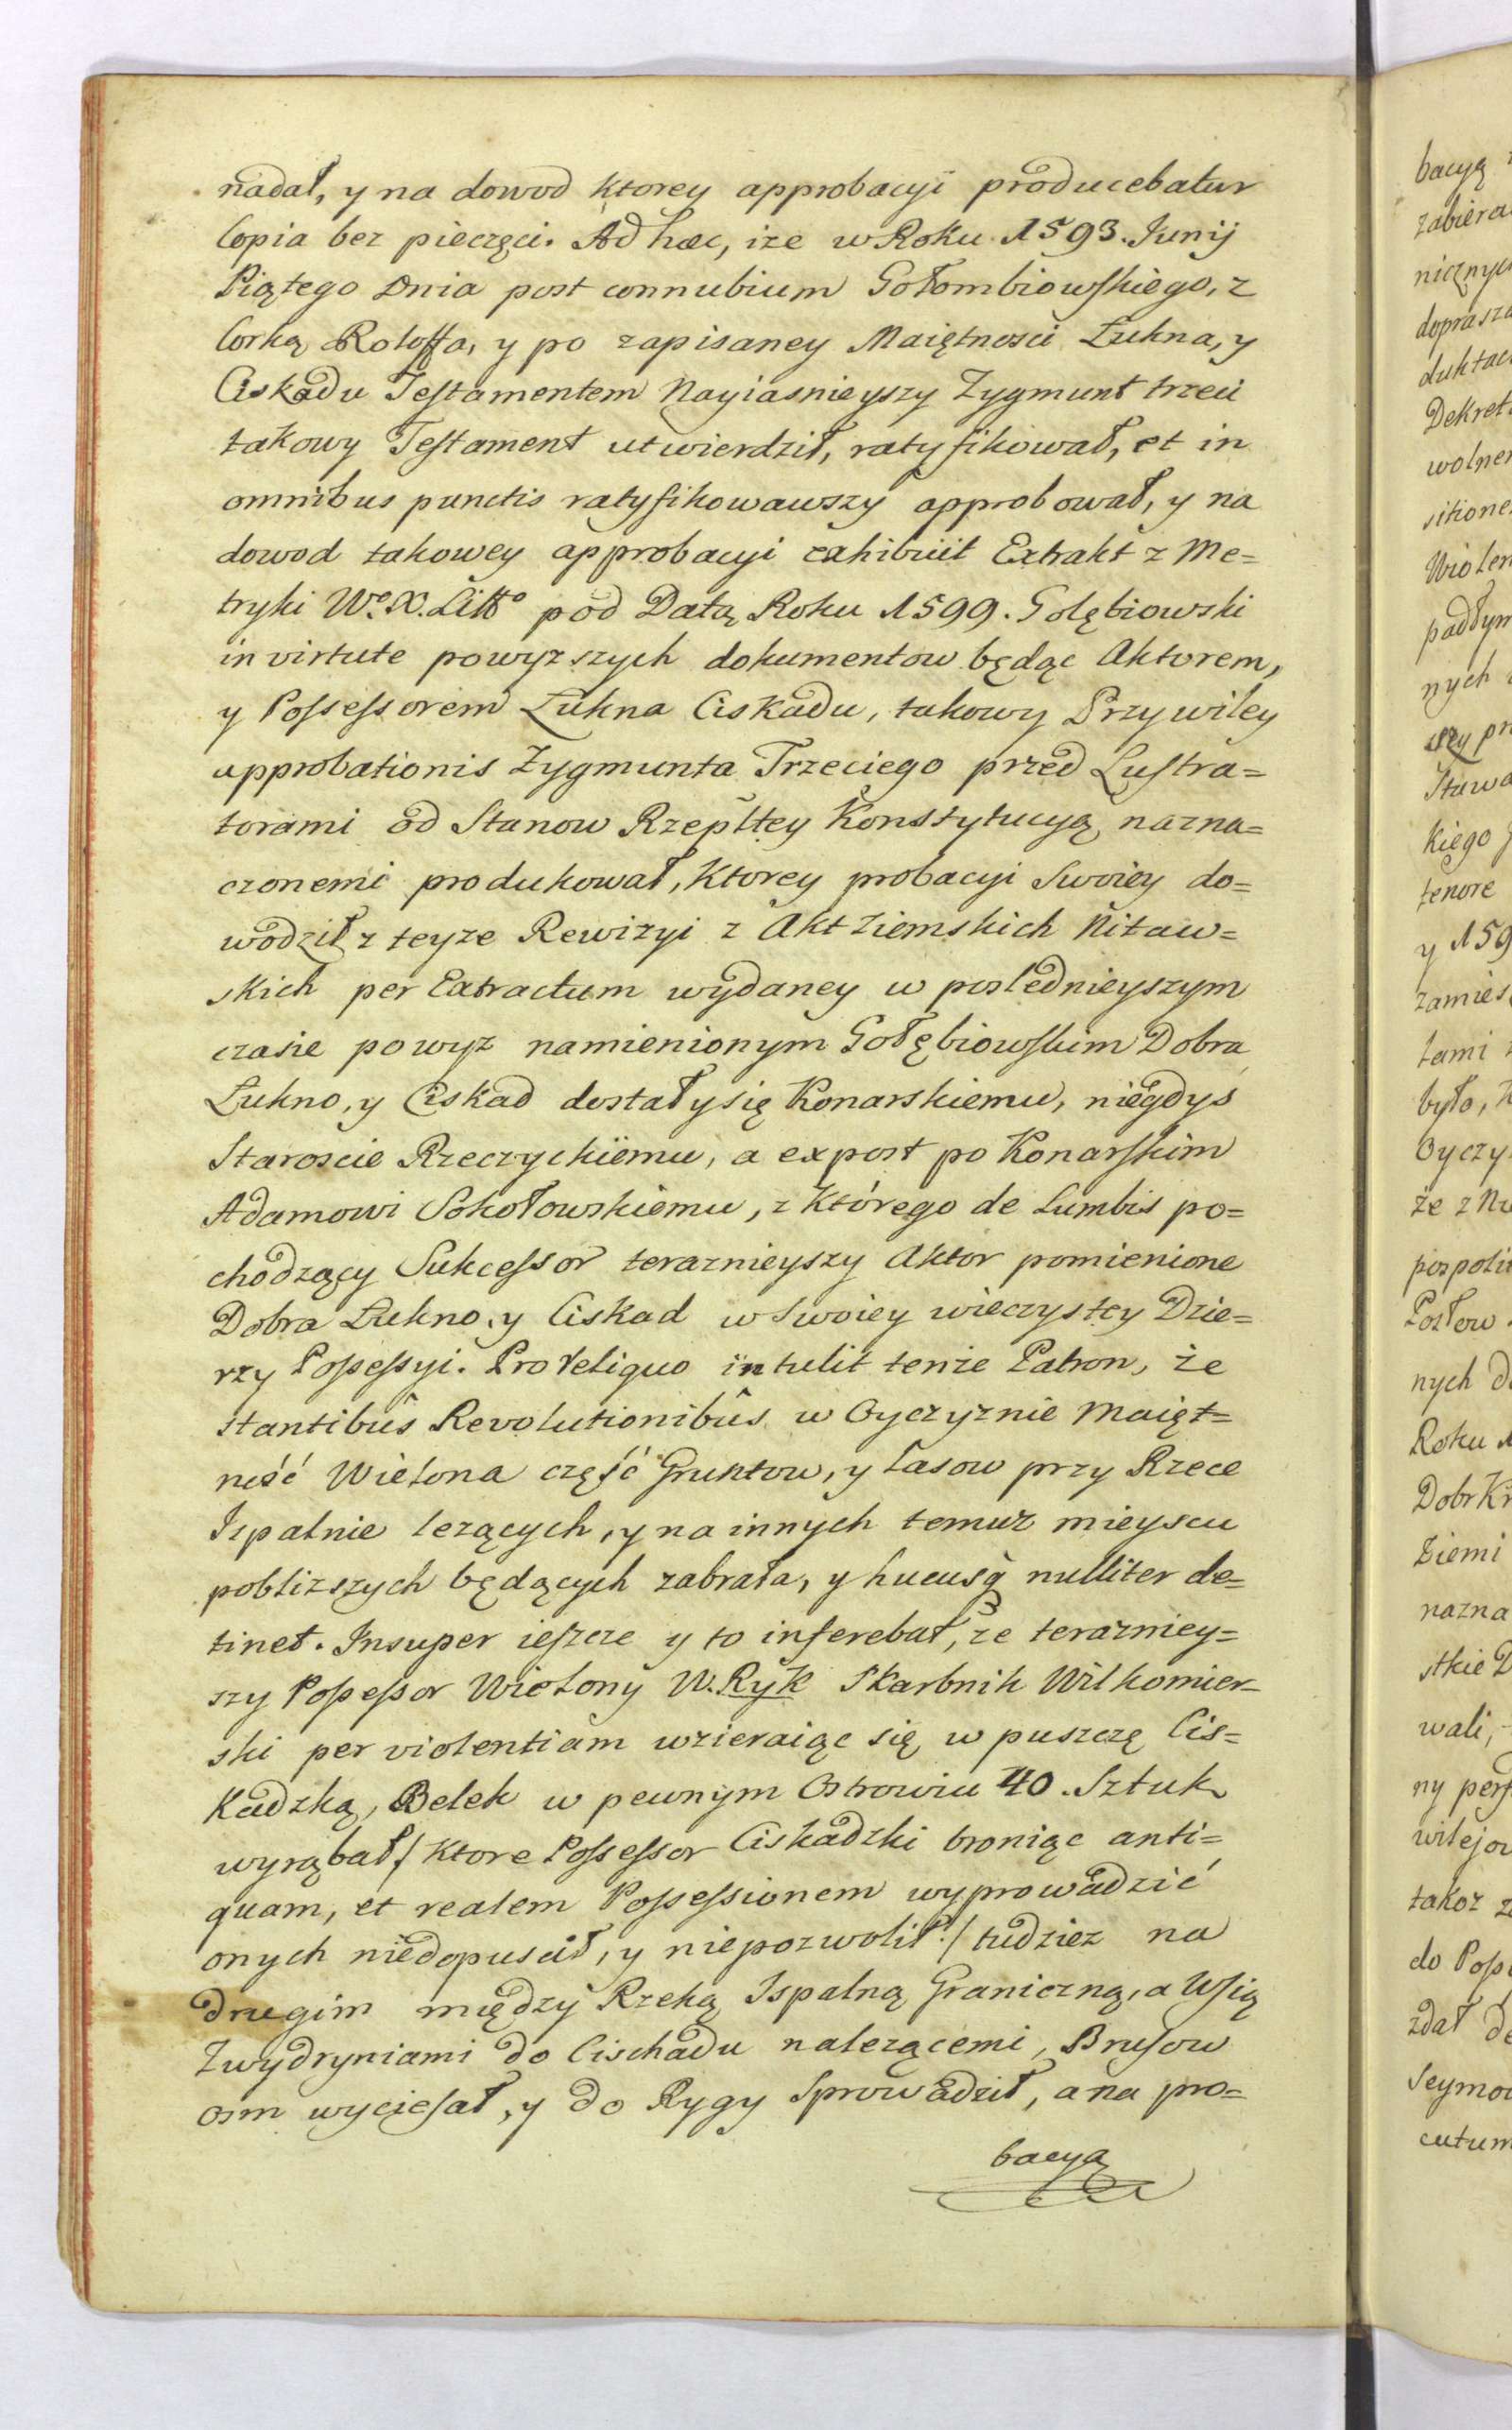 nadał, y na dowod ktorey approbacyi producebatur
Copia bez pieczęci. Ad hæc, iże w Roku 1593. Junij
Piątego Dnia post connubium Gołombiowskiego, z
Corką Roloffa, y po zapisaney Maiętnosci Łukna, y
Ciskadu Testamentem Nayiasnieyszy Zygmunt trzeci
takowy Testament utwierdził, ratyfikował, et in
omnibus punctis ratyfikowawszy approbował, y na
dowod takowey approbacyi exhibuit Extrakt z Me=
tryki Wº. X. Littº pod Datą Roku 1599. Golębiowski
in virtute powyzszych dokumentow będąc Aktorem,
y Possessorem Łukna Ciskadu, takowy Przywiley
approbationis Zygmunta Trzeciego przed Lustra=
torami od Stanow Rzepltey Konstytucyą nazna=
czonemi produkował, Ktorey probacyi Swoiey do=
wodził z teyze Rewizyi z Akt Ziemskich Nitaw=
skich per Extractum wydaney w poslednieyszym
czasie powyz namienionym Gołębiowskim Dobra
Łukno, y Ciskad dostały się Konarskiemu, niegdys
Staroscie Rzeczyckiemu, a expost po Konarskim
Adamowi Sokołowskiemu, z Którego de Lumbis po=
chodzący Sukcessor teraznieyszy Aktor pomienione
Dobra Łukno, y Ciskad w Swoiey wieczystey Dzie=
rzy Possessyi. Pro reliquo intulit tenże Patron, że
stantibus Revolutionibus w Oyczyznie Maięt=
ność Wielona część Gruntow, y Lasow przy Rzece
Ispalnie lezących, y na innych temuz mieyscu
poblizszych będących zabrała, y hucusq nulliter de=
tinet. Insuper ieszcze y to inferebat, ze terazniey=
szy Possessor Wielony W. Ryk Skarbnik Wilkomier=
ski per violentiam wzieraiąc się w puszczę Cis=
Kadzką, Belek w pewnym Ostrowiu 40. Sztuk
wyrąbał / Ktore Possessor Ciskadzki broniąc anti=
quam, et realem Possessionem wyprowadzić
onych niedopuscił, y niepozwolił / tudziez na
drugim między Rzeką Ispalną Graniczną, a Wsią
Zwydryniami do Cischadu nalezącemi, Brusow
osm wyciesał, y do Rygy Sprowadził, a na pro=
bacyą
bacyą
zabiera
nicznych
doprasza
duktac
Dekret
wolne
sitione
Wiolen
padłym
nych
szy pr
Stawa
kiego
tenore
y 159
zamies
tami
było,
Oyczy
że z
pospoli
Posłow
nych d
Roku
Dobr K
Ziemi
nazna
stkie D
wali,
ny per
wilejo
takoz z
do Poss
zdał de
Seymo
cutum